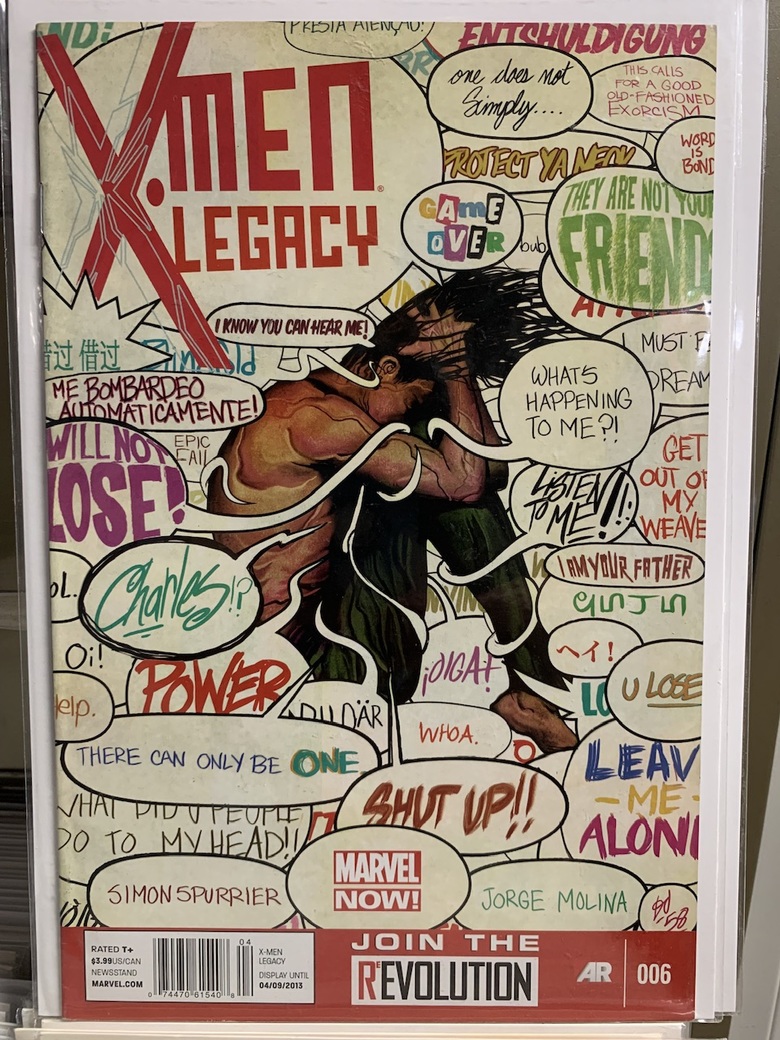 PRESTA ATENÇÃO!
ENTSHULDIGUNG
X-MEN
LEGACY
one does not
Simply....
THIS CALLS
FOR A GOOD
OLD-FASHIONED
EXORCISM
WORD
IS
BOND
PROTECT YA NECK
GAmE
OVER
bub
THEY ARE NOT YOUR
FRIENDS
I KNOW YOU CAN HEAR ME!
借过 借过
ME BOMBARDEO
AUTOMATICAMENTE!
I MUST B
DREAM
WHATS
HAPPENING
TO ME?!
WILL NOT
LOSE!
EPIC
FAIL
GET
OUT OF
MY
WEAVE
LISTEN
TO ME!!!
I AM YOUR FATHER
Charles!?
OL.
Oi!
¡OIGA!
ヘイ!
POWER
elp.
DU DÄR
WHOA.
LO
U LOSE
THERE CAN ONLY BE ONE
LEAV
-ME-
ALON
SHUT UP!!
WHAT DID U PEOPLE
DO TO MY HEAD!!
SIMON SPURRIER
MARVEL
NOW!
JORGE MOLINA
RATED T+
$3.99US/CAN
NEWSSTAND
MARVEL.COM
04
0 74470 61540 8
X-MEN
LEGACY
DISPLAY UNTIL
04/09/2013
JOIN THE
REVOLUTION
AR
006